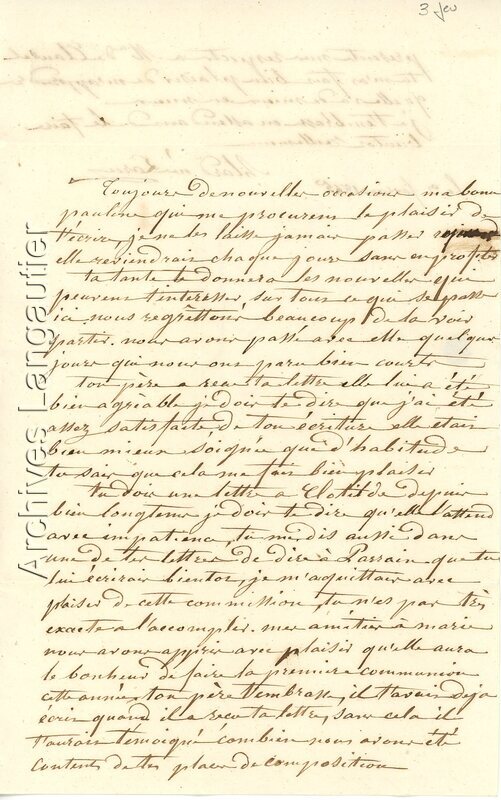 3 fev
Toujours de nouvelles occasions ma bonne
pauline qui me procurent le plaisir de
t'écrire, je ne les laisse jamais passer
elle reviendrais chaque jours sans en profiter
ta tante te donnera les nouvelles qui
peuvent t'interesser, sur tous ce qui se passe
ici nous regrettons beaucoup de la voir
partir. nous avons passé avec elle quelque
jours qui nous ont paru bien courts
ton père a recu ta lettre elle lui a été
bien agréable je dois te dire que j'ai été
assez satisfaite de ton écriture elle étais
bien mieux soignée que d'habitude
tu sais que cela me fais bien plaisir
tu dois une lettre a Clotilde depuis
bien longtems je dois te dire qu'elle l'attend
avec impatience, tu me dis aussi dans
une de tes lettres de dire à Parrain que tu
lui écrirais bientot, je m'aquittais avec
plaisir de cette commission, tu n'es pas très
exacte a l'accomplir. mes amitiés à marie
nous avons appris avec plaisir qu'elle aura
le bonheur de faire la premiere communion
cette année, ton père t'embrasse, il t'avais deja
écris quand il a recu ta lettre, sans cela il
t'aurais témoigné combien nous avons été
contents de tes places de composition
Archives Langautier